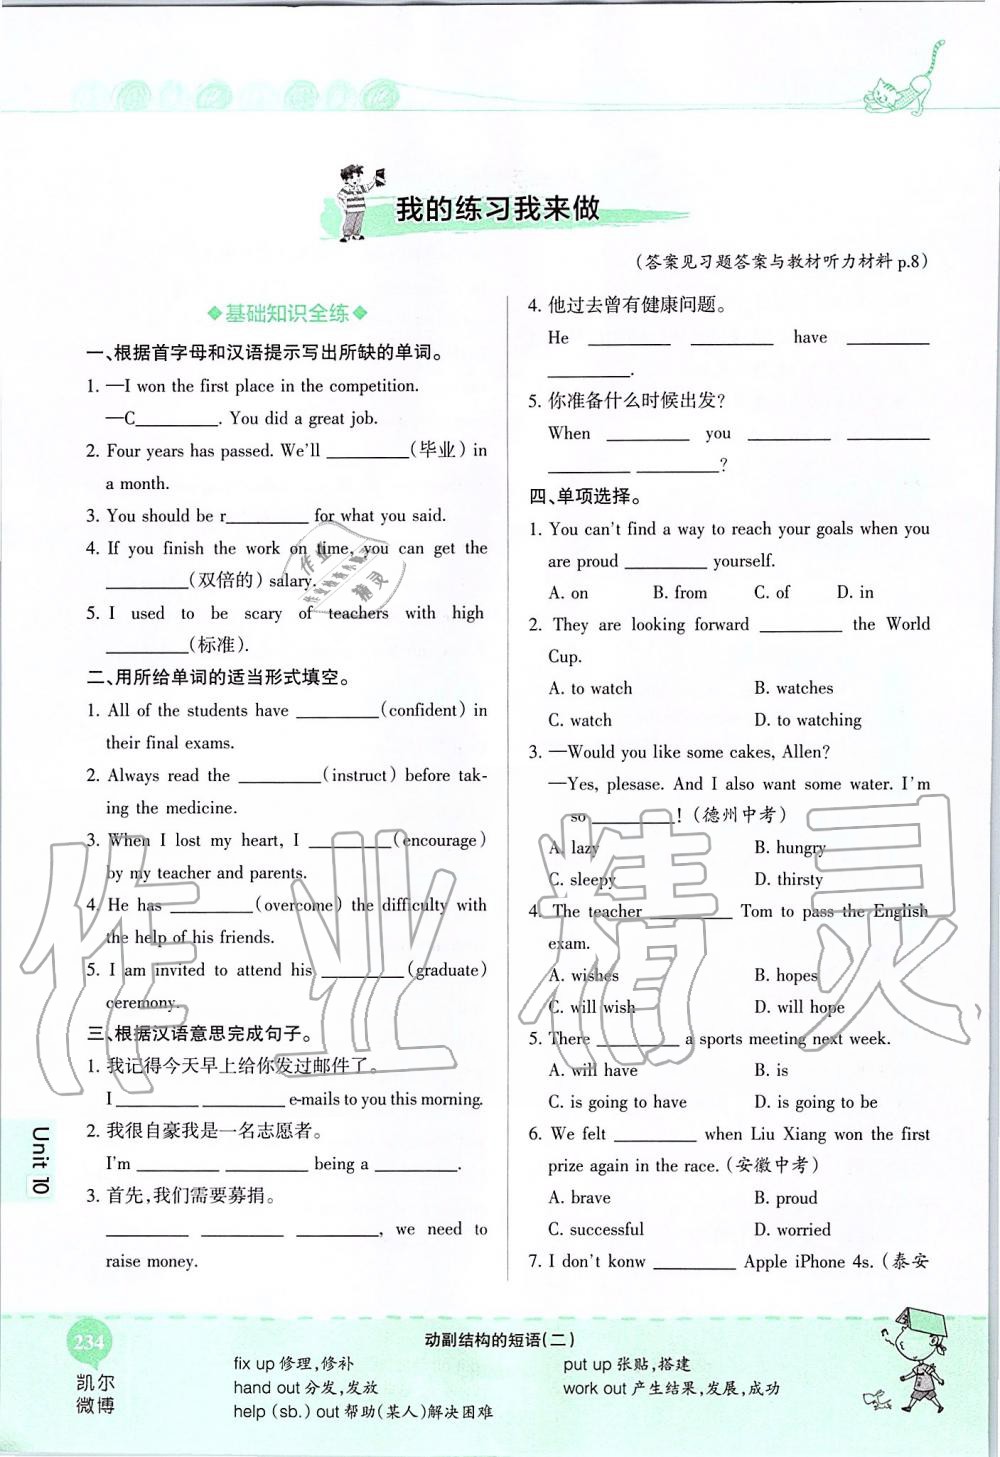 我的练习我来做
(答案见习题答案与教材听力材料 p.8)
基础知识全练
一、根据首字母和汉语提示写出所缺的单词。
1. —I won the first place in the competition.
—C________. You did a great job.
2. Four years has passed. We'll ________(毕业) in
a month.
3. You should be r________ for what you said.
4. If you finish the work on time, you can get the
________(双倍的) salary.
5. I used to be scary of teachers with high
________(标准).
二、用所给单词的适当形式填空。
1. All of the students have ________(confident) in
their final exams.
2. Always read the ________(instruct) before tak-
ing the medicine.
3. When I lost my heart, I ________(encourage)
by my teacher and parents.
4. He has ________(overcome) the difficulty with
the help of his friends.
5. I am invited to attend his ________(graduate)
ceremony.
三、根据汉语意思完成句子。
1. 我记得今天早上给你发过邮件了。
I ________ ________ e-mails to you this morning.
2. 我很自豪我是一名志愿者。
I'm ________ ________ being a ________.
3. 首先,我们需要募捐。
________ ________ ________ ________, we need to
raise money.
4. 他过去曾有健康问题。
He ________ ________ have ________
________.
5. 你准备什么时候出发?
When ________ you ________ ________
________ ________?
四、单项选择。
1. You can't find a way to reach your goals when you
are proud ________ yourself.
A. on B. from C. of D. in
2. They are looking forward ________ the World
Cup.
A. to watch B. watches
C. watch D. to watching
3. —Would you like some cakes, Allen?
—Yes, plesase. And I also want some water. I'm
so ________! (德州中考)
A. lazy B. hungry
C. sleepy D. thirsty
4. The teacher ________ Tom to pass the English
exam.
A. wishes B. hopes
C. will wish D. will hope
5. There ________ a sports meeting next week.
A. will have B. is
C. is going to have D. is going to be
6. We felt ________ when Liu Xiang won the first
prize again in the race. (安徽中考)
A. brave B. proud
C. successful D. worried
7. I don't konw ________ Apple iPhone 4s. (泰安
Unit 10
234
凯尔
微博
动副结构的短语(二)
fix up 修理,修补
hand out 分发,发放
help (sb.) out 帮助(某人)解决困难
put up 张贴,搭建
work out 产生结果,发展,成功
作业精灵